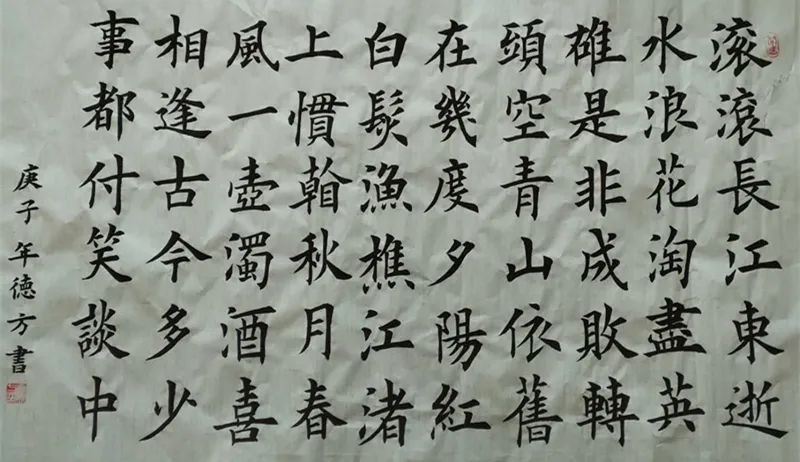 滚滾長江東逝
水浪花淘盡英
雄是非成敗轉
頭空青山依舊
在幾度夕陽紅
白髮漁樵江渚
上慣看秋月春
風一壺濁酒喜
相逢古今多少
事都付笑談中
庚子年德方書